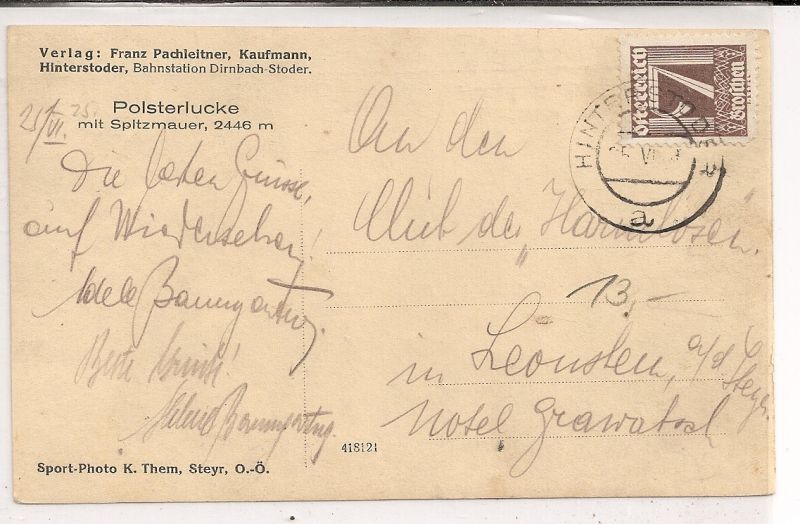 Verlag: Franz Pachleitner, Kaufmann,
Hinterstoder, Bahnstation Dirnbach-Stoder.
Polsterlucke
mit Spitzmauer, 2446 m
25/VI. 25.
Die besten Grüsse,
auf Wiedersehen!
Adele Baumgartner.
Beste Grüße!
Baumgartner
Sport-Photo K. Them, Steyr, O.-Ö.
418121
Österreich
7
Groschen
HINTERSTODER
a
An den
Club der „Harmlosen"
13,-
in Leonstein, a/d Steyr.
Hotel